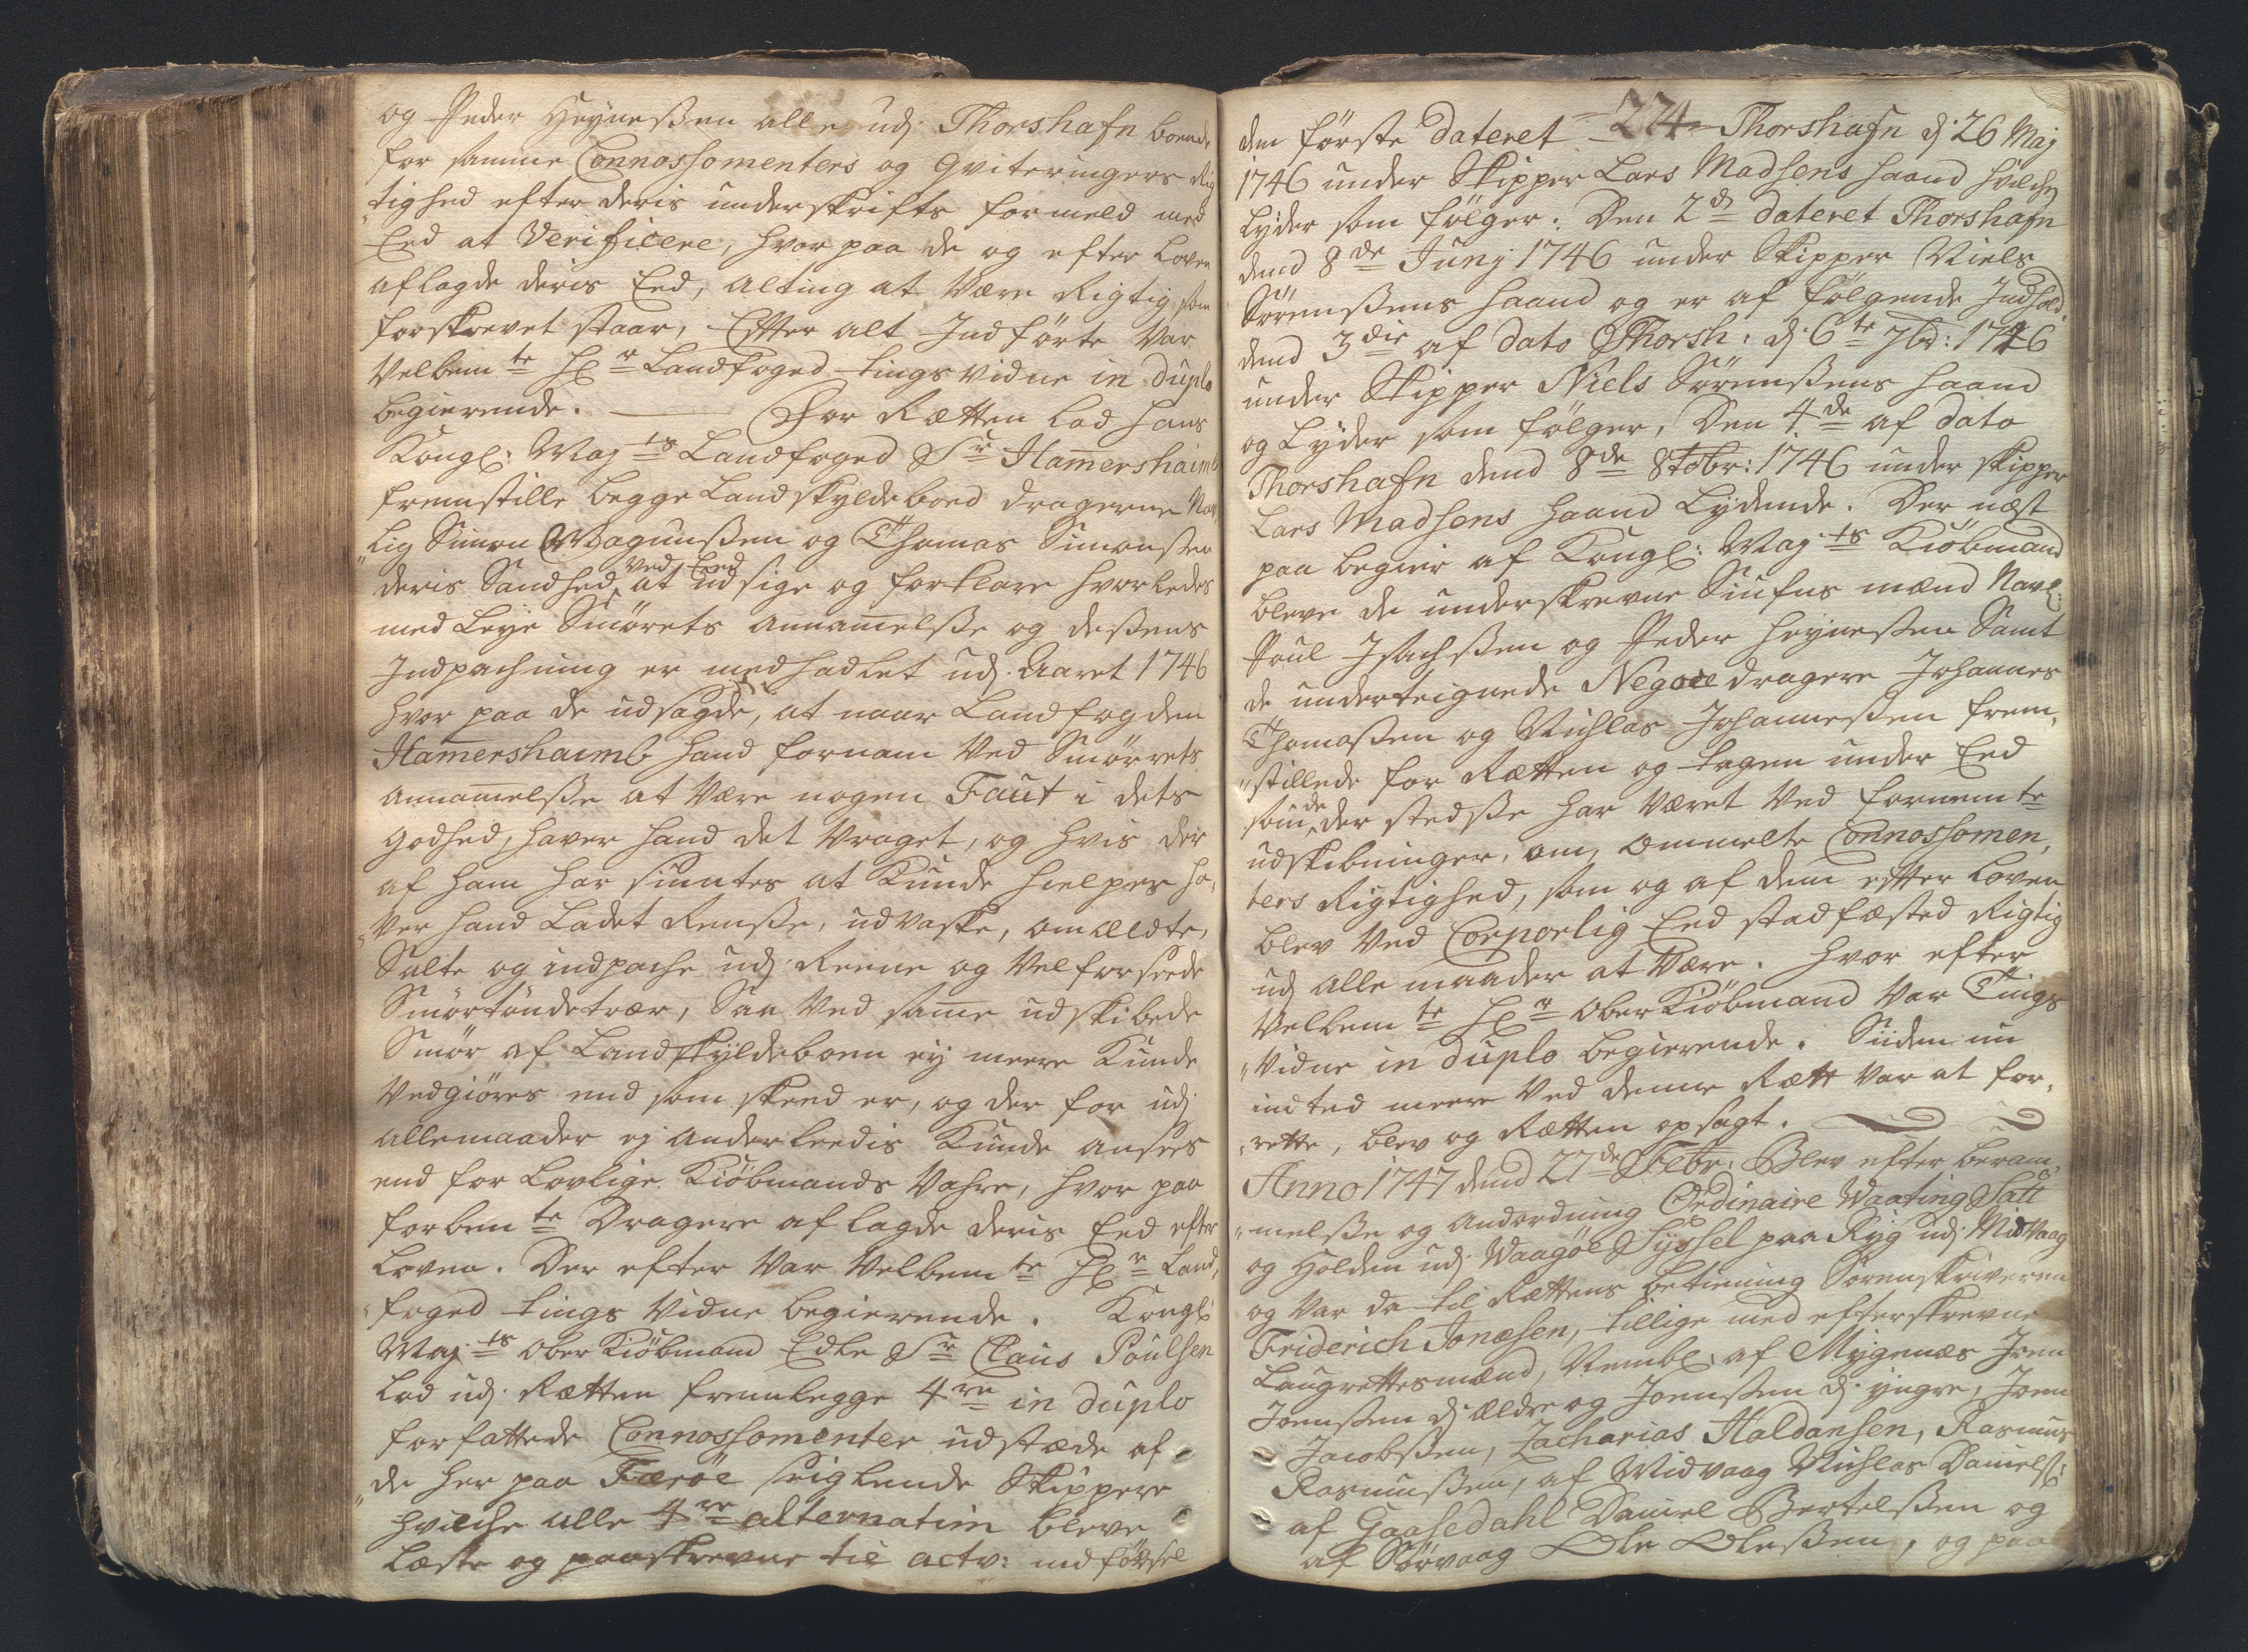 og Peder Heyneßen alle udj Thorshafn boende
for samme Connossomenters og Qviteringers Rig
„tighed efter deris underskrifts formeld med
Eed at Verificere, hvor paa de og efter Loven
aflagde deris Eed, alting at være Rigtig som
forskrevet staar, Efter alt Indførte var
Velbemte Hr Landfoged tings vidne in duplo
begierende. ——— For Rætten lod Hans
Kongl: Mayts Landfoged Sr Ham̅ershaimb
fremstille begge Landskyldeboed dragerne Nav
„lig Simon Magnußen og Thomas Simonßen
deris Sandhed ved Eed at udsige og forklare hvorledes
med Leye Smørets annam̅elße og deßens
Indpachning er medhadlet udj Aaret 1746
hvor paa de udsagde, at naar Landfogden
Ham̅ershaimb hand fornam ved Smørrets
annam̅elße at være nogen Faut i dets
godhed, haver hand det vraget, og hvis der
af ham har siuntes at kunde hielpes ha,
„ver hand Ladet Renße, udvaske, omældte,
Salte og indpache udj Reene og vel forseede
Smørtøndetrær, Saa ved sam̅e udskibede
Smør af Landskyldeboen ey meere kunde
vedgiøres end som skeed er, og der for udj
allemaader ej anderleedis kunde ansees
end for Lovlige Kiøbmands Vahre, hvor paa
forbemte Dragere aflagde deris Eed efter
Loven. Der efter var Velbemte Hr Land,
„foged tings vidne begierende. Kongl:
Mayts Ober Kiøbmand Edle Sr Claus Poulsen
lod udj Rætten fremlegge 4re in duplo
forfattede Connossomenter udstæde af
„de her paa Færøe seiglende Skippere
hvilche alle 4re alternatim bleve
Læste og paaskrevne til actv: indførsel
274
den første dateret Thorshafn d: 26 Maj
1746 under Skipper Lars Madsens haand hvilchen
lyder som følger: Den 2d dateret Thorshafn
dend 8de Junj 1746 under Skipper Niels
Sørenßens haand og er af følgende Indhold,
dend 3die af dato Thorsh: d: 6te 7br: 1746
under Skipper Niels Sørenßens haand
og Lyder som følger, Den 4de af dato
Thorshafn dend 8de 8tobr: 1746 under skipper
Lars Madsens haand Lydende. Der næst
paa begier af Kongl: Mayts Kiøbmand
bleve de underskrevne Siufns mænd Navl:
Poul Isachßen og Peder Heyneßen Samt
de underteignede Negoce dragere Johannes
Thomaßen og Nichlas Johanneßen frem,
„stillede for Rætten og tagen under Eed
som de der stedße har været ved fornemte
udskibninger, om ommelte Connossomen,
ters Rigtighed, som og af dem efter Loven
blev ved Corporlig Eed stadfæsted Rigtig
udj alle maader at være. Hvor efter
Velbemte Hr Ober Kiøbmand var Tings
„vidne in duplo begierende. Siiden nu
indted meere ved denne Rætt var at for,
„rette, blev og Rætten opsagt.
Anno 1747 dend 27de Febr: Blev efter beram,
„melße og Andordning Ordinaire Vaarting Satt
og Holden udj Waagøe Syssel paa Ryg udj Midvaag
og var da til Rættens betiening Sorenskriveren
Friderich Jonæsen, tillige med efterskrevne
Laugrettesmænd, Nembl: af Mygenæs Joen
Joenßen dj ældre og Joenßen dj yngre, Joen
Jacobßen, Zacharias Haldansen, Rasmus
Rasmußen, af Midvaag Nichlas Danielß:
af Gaasedahl Daniel Bertelßen og
af Sørvaag Ole Oleßen, og paa